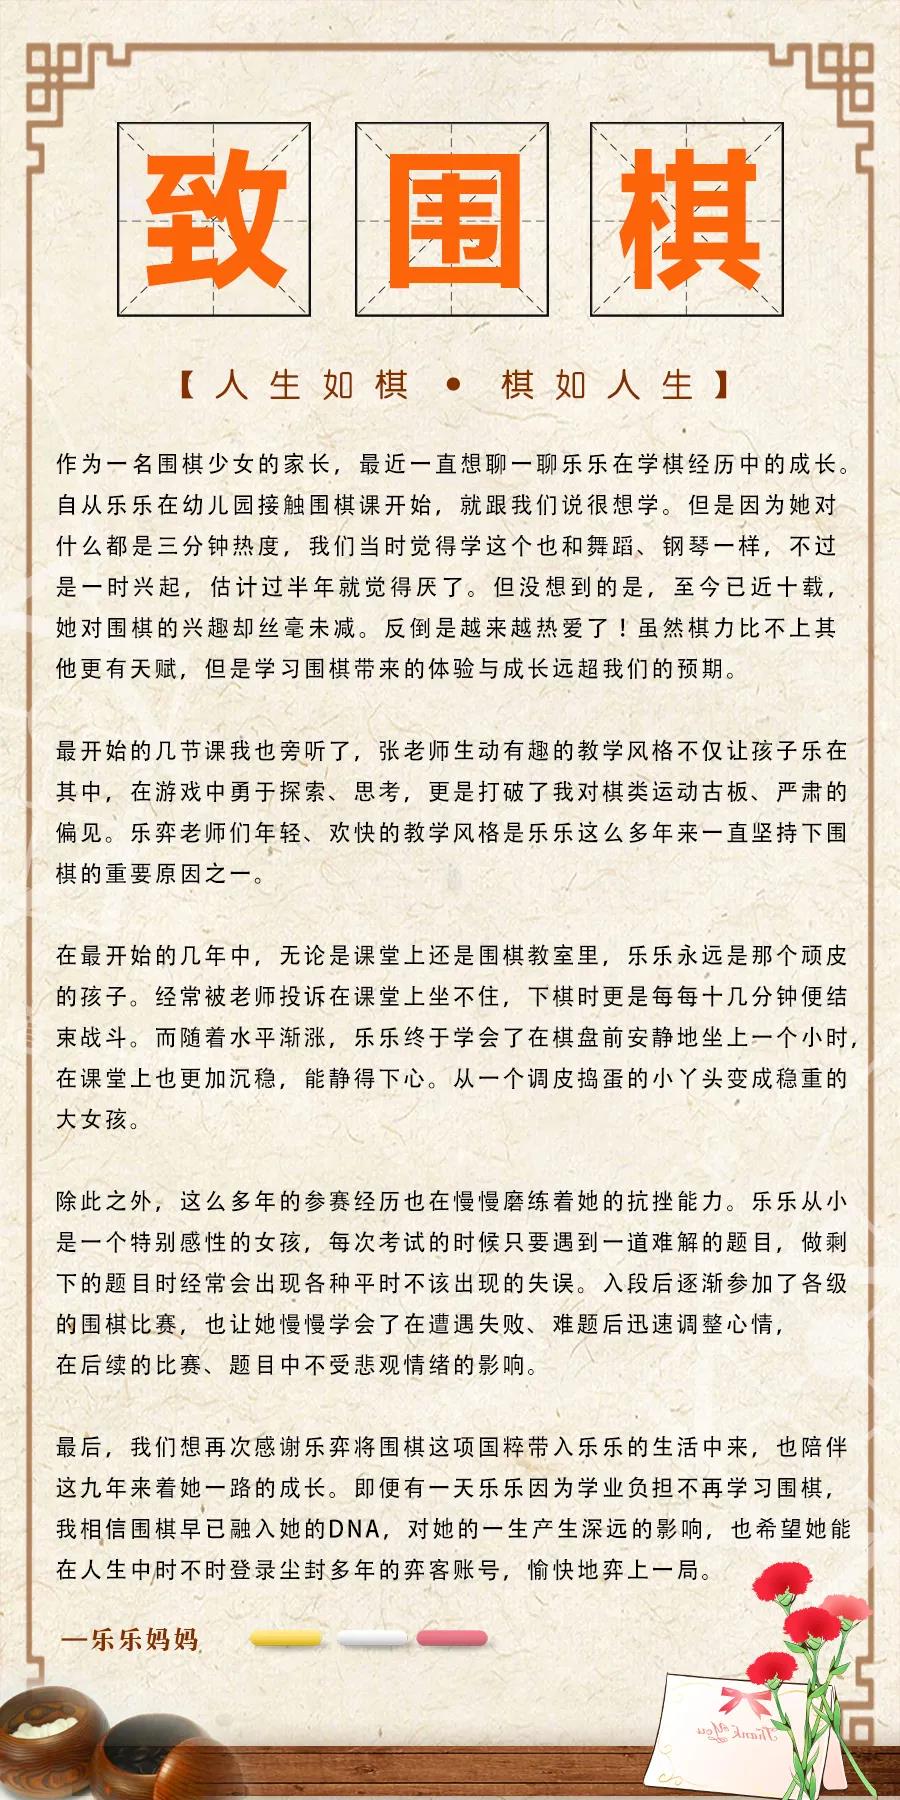 致围棋
【人生如棋 • 棋如人生】
作为一名围棋少女的家长，最近一直想聊一聊乐乐在学棋经历中的成长。
自从乐乐在幼儿园接触围棋课开始，就跟我们说很想学。但是因为她对
什么都是三分钟热度，我们当时觉得学这个也和舞蹈、钢琴一样，不过
是一时兴起，估计过半年就觉得厌了。但没想到的是，至今已近十载，
她对围棋的兴趣却丝毫未减。反倒是越来越热爱了！虽然棋力比不上其
他更有天赋，但是学习围棋带来的体验与成长远超我们的预期。
最开始的几节课我也旁听了，张老师生动有趣的教学风格不仅让孩子乐在
其中，在游戏中勇于探索、思考，更是打破了我对棋类运动古板、严肃的
偏见。乐弈老师们年轻、欢快的教学风格是乐乐这么多年来一直坚持下围
棋的重要原因之一。
在最开始的几年中，无论是课堂上还是围棋教室里，乐乐永远是那个顽皮
的孩子。经常被老师投诉在课堂上坐不住，下棋时更是每每十几分钟便结
束战斗。而随着水平渐涨，乐乐终于学会了在棋盘前安静地坐上一个小时，
在课堂上也更加沉稳，能静得下心。从一个调皮捣蛋的小丫头变成稳重的
大女孩。
除此之外，这么多年的参赛经历也在慢慢磨练着她的抗挫能力。乐乐从小
是一个特别感性的女孩，每次考试的时候只要遇到一道难解的题目，做剩
下的题目时经常会出现各种平时不该出现的失误。入段后逐渐参加了各级
的围棋比赛，也让她慢慢学会了在遭遇失败、难题后迅速调整心情，
在后续的比赛、题目中不受悲观情绪的影响。
最后，我们想再次感谢乐弈将围棋这项国粹带入乐乐的生活中来，也陪伴
这九年来着她一路的成长。即便有一天乐乐因为学业负担不再学习围棋，
我相信围棋早已融入她的DNA，对她的一生产生深远的影响，也希望她能
在人生中时不时登录尘封多年的弈客账号，愉快地弈上一局。
—乐乐妈妈
Thank You